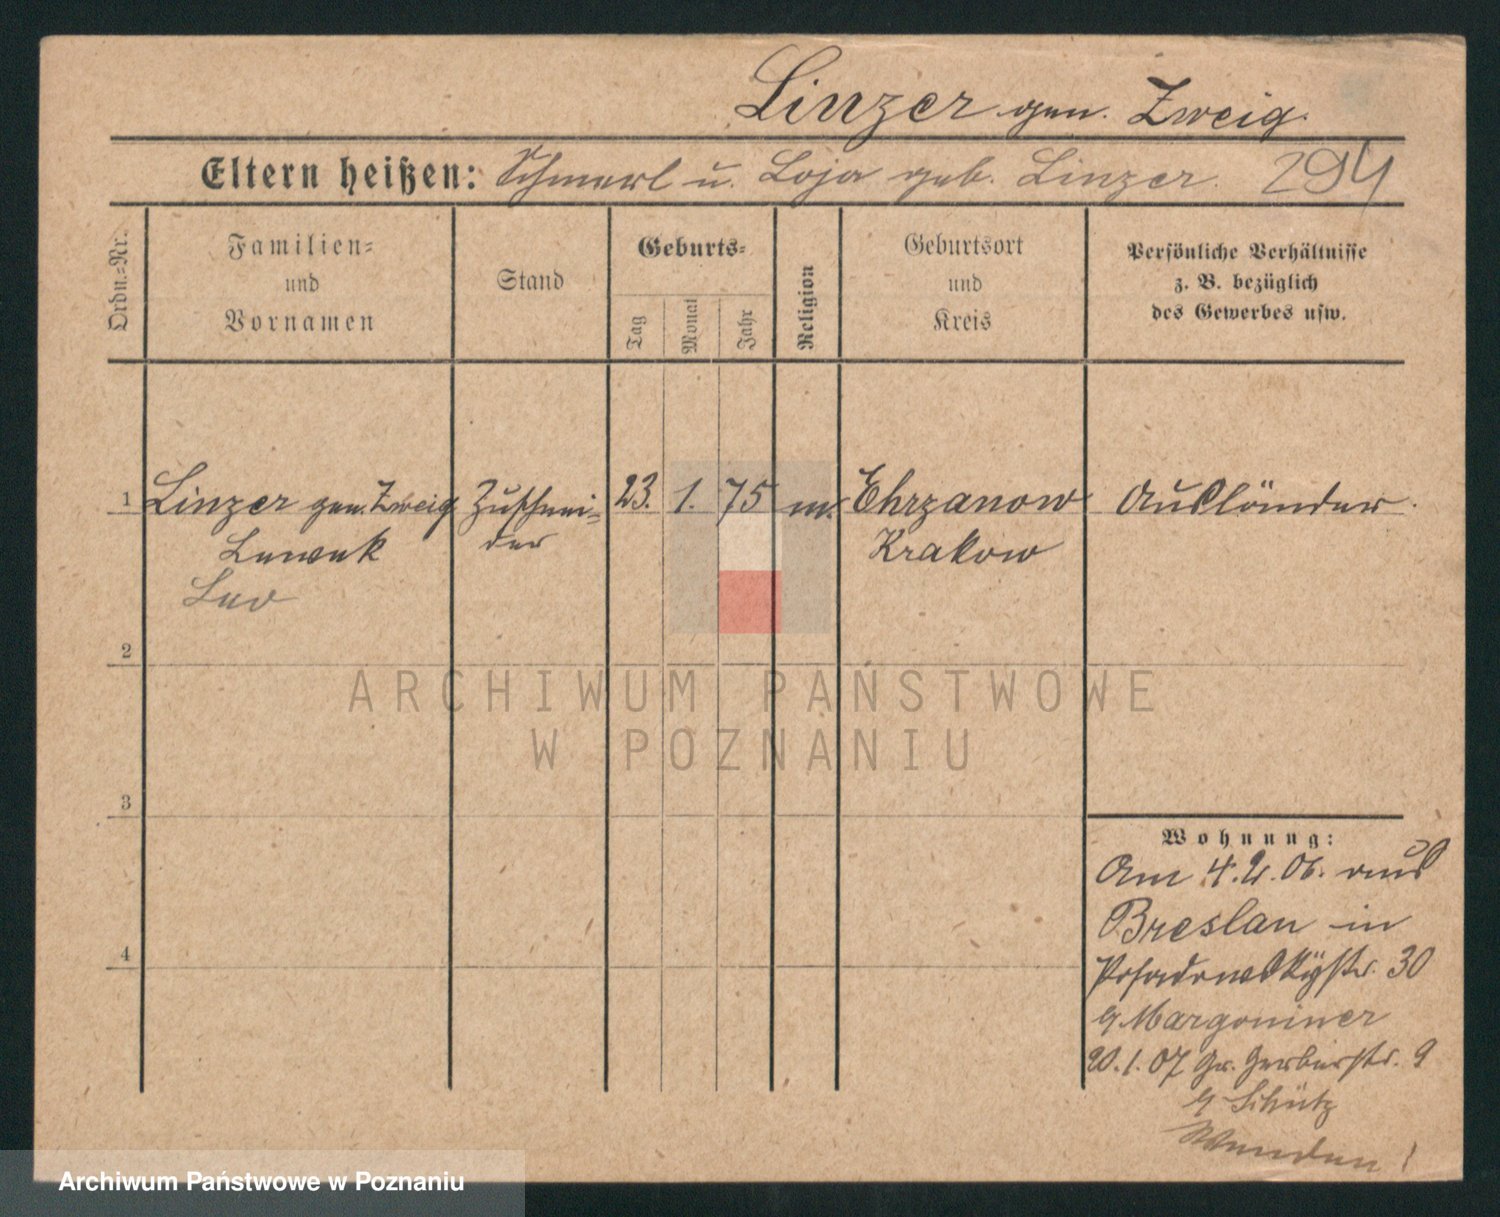 Linzer gen. Zweig.
Eltern heißen: Schmerl u. Loja geb. Linzer. 294
Ordn.=Nr.
Familien=
und
Vornamen
Stand
Geburts=
Tag
Monat
Jahr
Religion
Geburtsort
und
Kreis
Persönliche Verhältnisse
z. B. bezüglich
des Gewerbes usw.
1 Linzer gen. Zweig Zuschnei= 23. 1. 75 m. Chrzanow Ausländer.
Lewek der Krakow
Leo
2
ARCHIWUM PAŃSTWOWE
W POZNANIU
3
Wohnung:
Am 4.2.06. aus
Breslau in
Posadowskystr. 30
b/ Margoniner
20.1.07 Gr. Gerberstr. 9
b/ Schütz
Wenden!
4
Archiwum Państwowe w Poznaniu